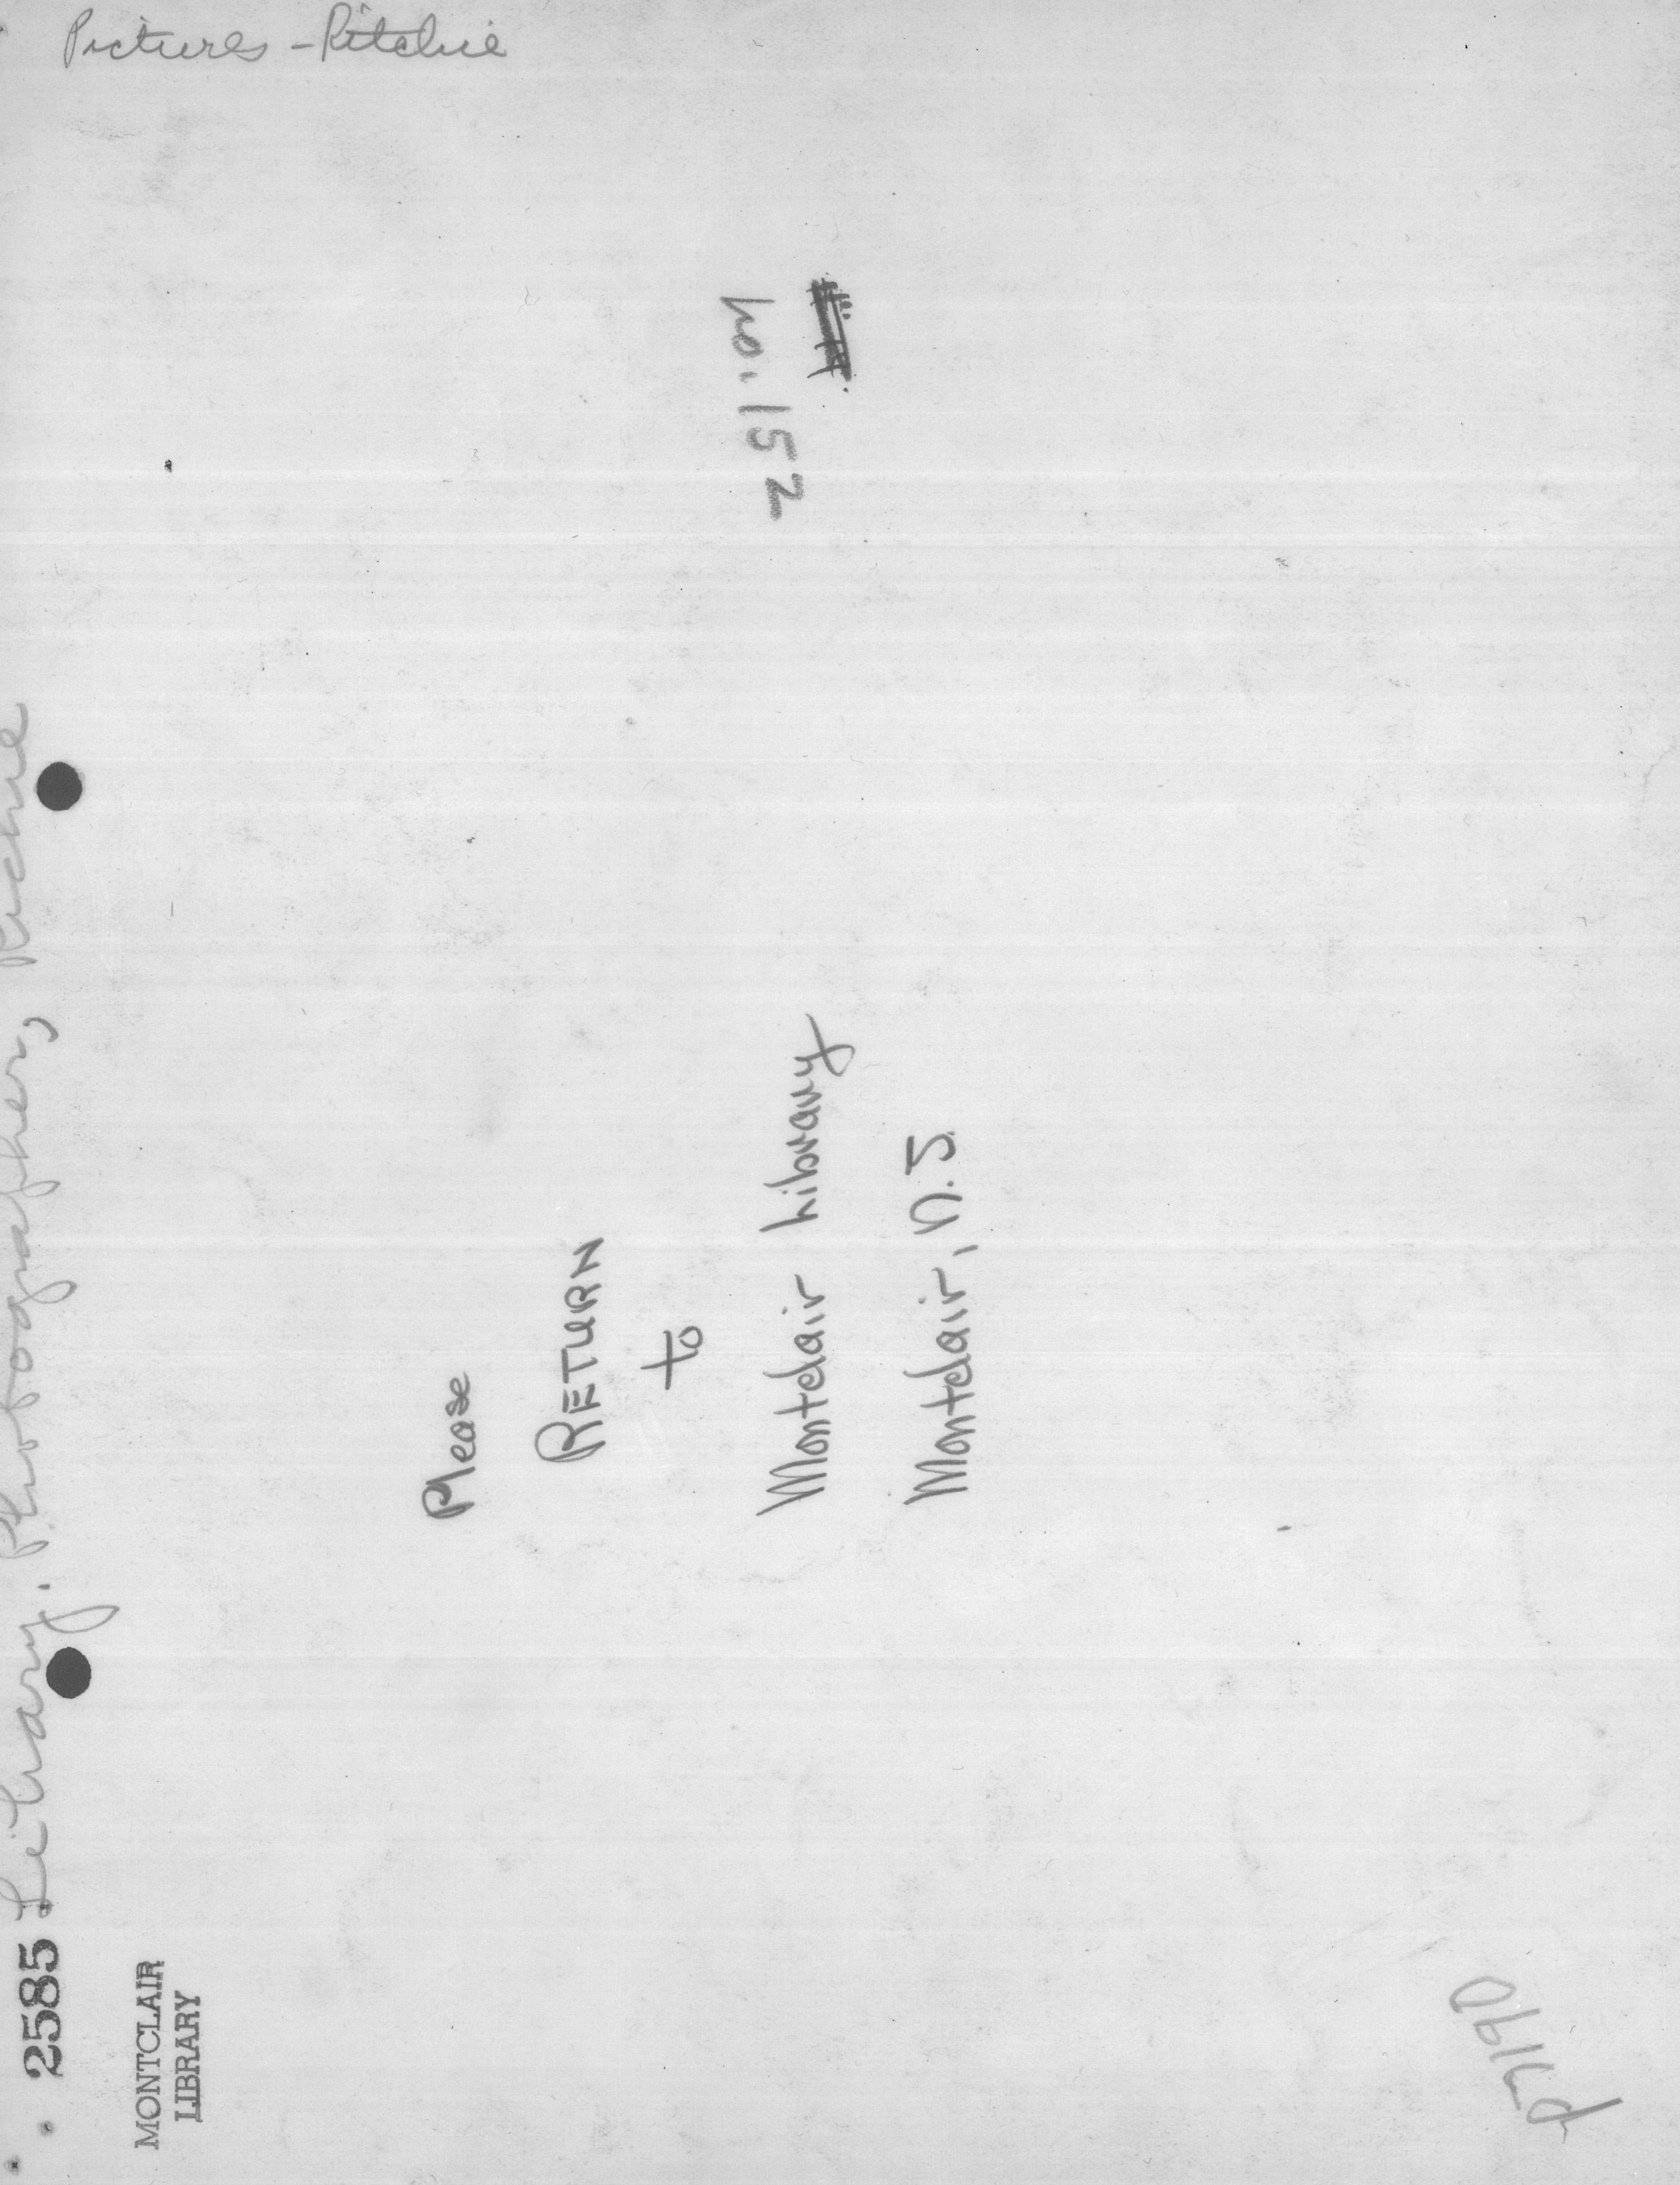 Pictures - Ritchie
no. 152
2585 Library. Photographer, Ritchie
MONTCLAIR
LIBRARY
Please
RETURN
to
Montclair Library
Montclair, N.J.